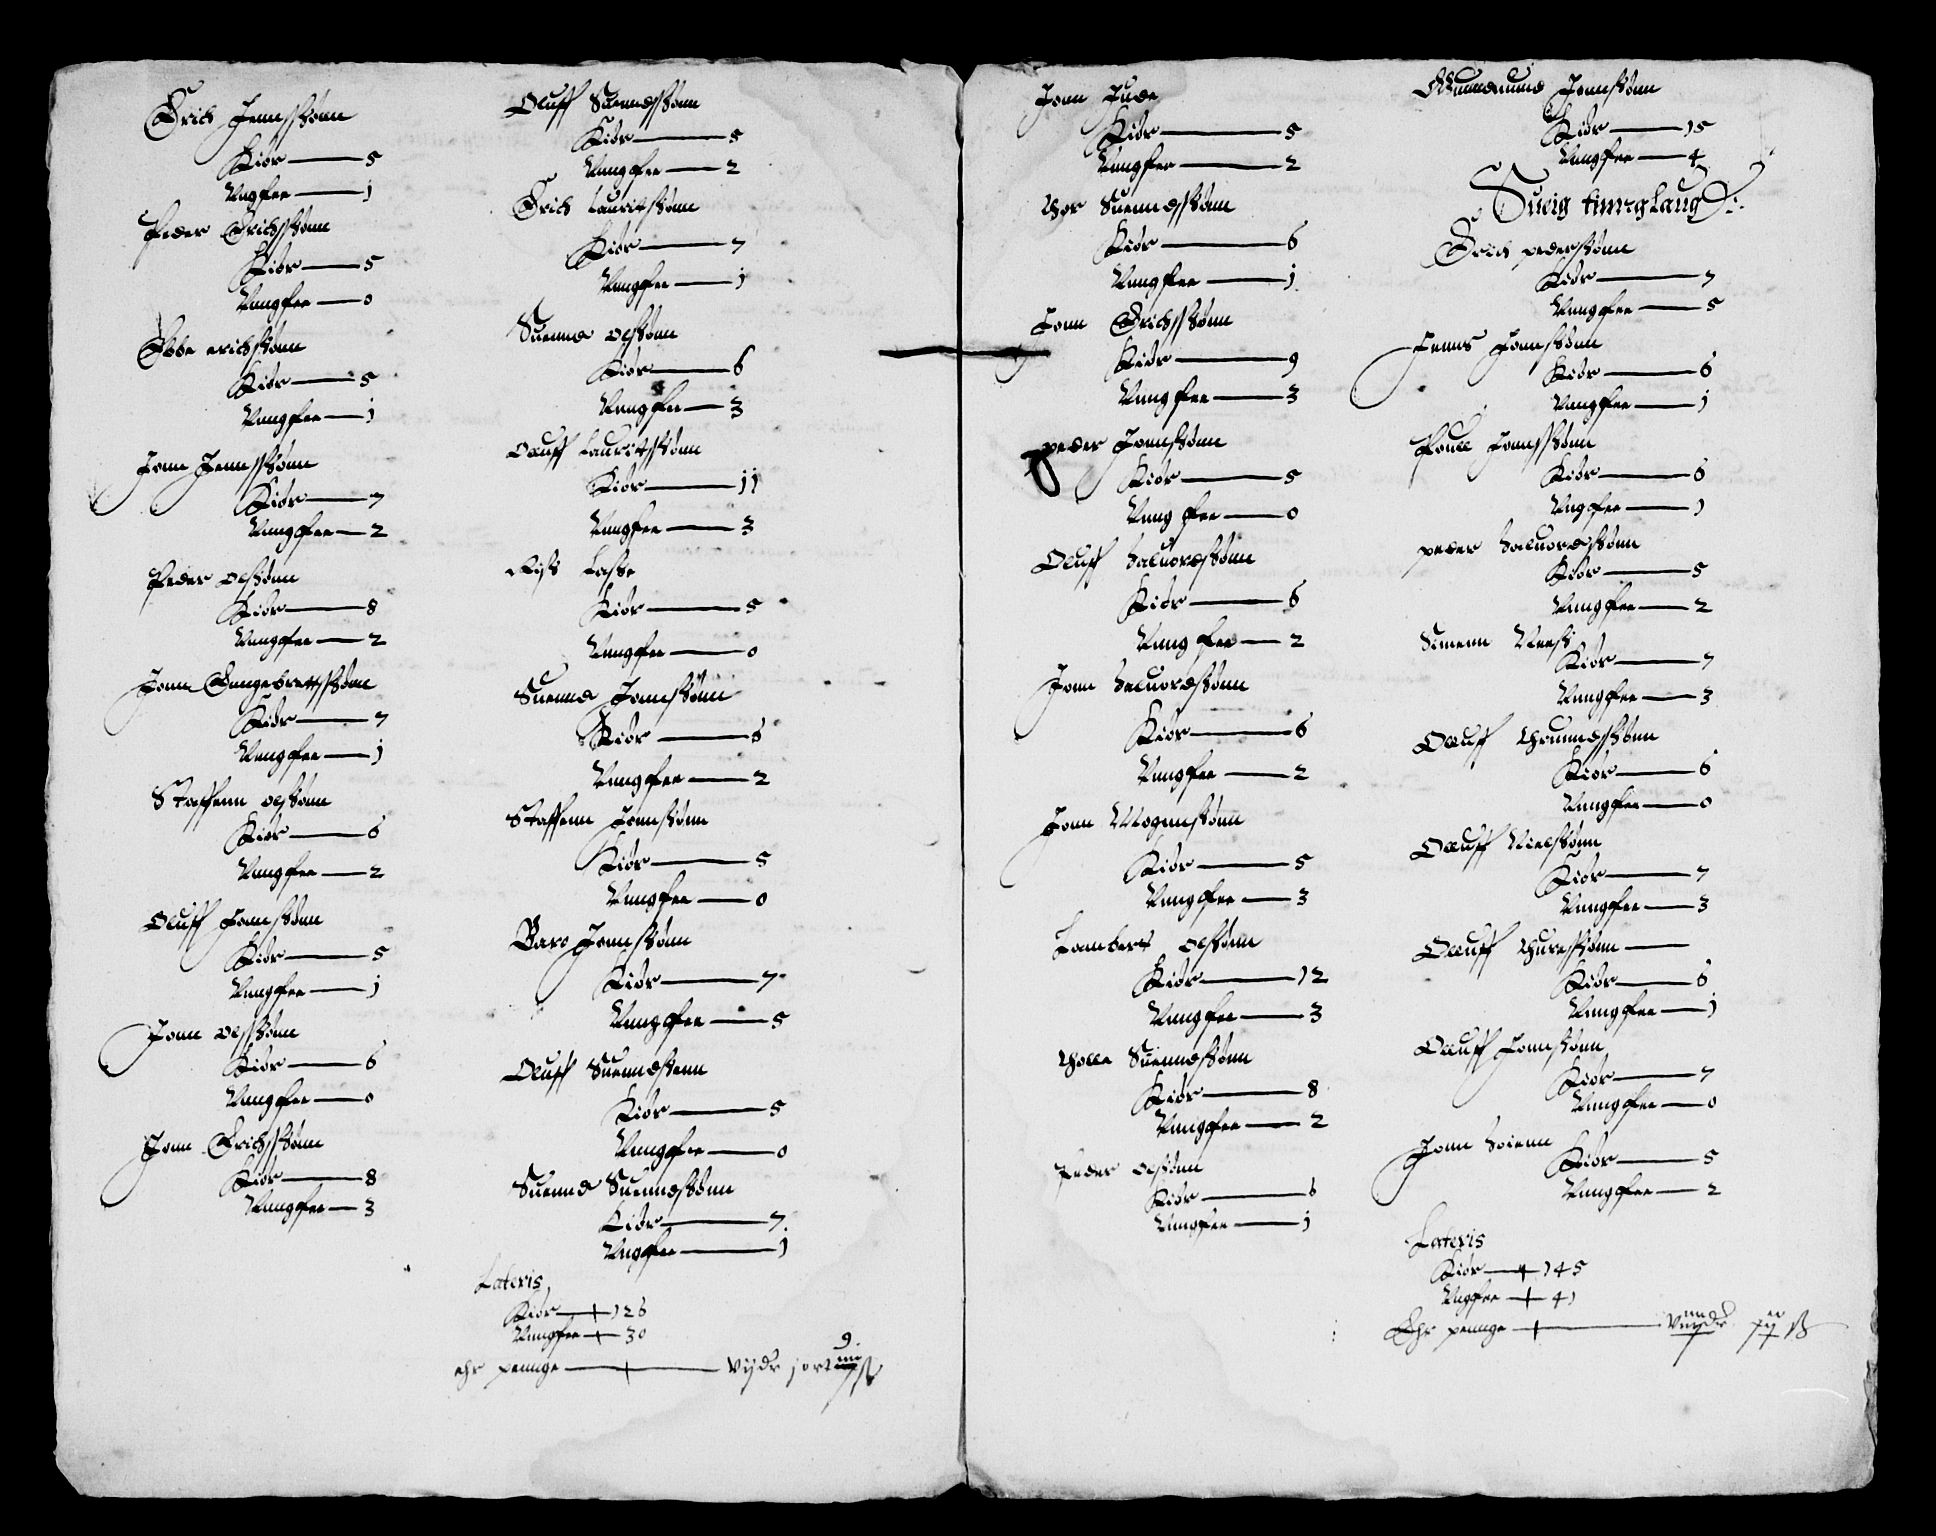 Erich Jennssønn
Kiør 5
Vngfee 1
Peder Erichssønn
Kiør 5
Vnngfee 0
Ebbe erichsønn
Kiør 5
Vnngfee 1
Jonn Jennssønn
Kiør 7
Vnngfee 2
Peder olssønn
Kiør 8
Vnngfee 2
Jonn Enngebrettssønn
Kiør 7
Vnngfee 1
Staffenn olsønn
Kiør 6
Vnngfee 2
Oluff Jonnsønn
Kiør 5
Vnngfee 1
Jonn olssønn
Kiør 6
Vnngfee 0
Jonn Erichssønn
Kiør 8
Vnngfee 3
Oluff Suenndssønn
Kiør 5
Vnngfee 2
Erich lauritsønn
Kiør 7
Vnngfee 1
Suennd olsønn
Kiør 6
Vnngfee 3
Oluff lauritssønn
Kiør 11
Vnngfee 3
Lasse
Kiør 5
Vnngfee 0
Suennd Jonnsønn
Kiør 6
Vnngfee 2
Staffenn Jonnsønn
Kiør 5
Vnngfee 0
Baro Jonnsønn
Kiør 7
Vnngfee 5
Oluff Suenndsønn
Kiør 5
Vnngfee 0
Suennd Suenndsønn
Kiør 7
Vngfee 1
Lateris
Kiør 126
Vnngfee 30
ehr pennge vijdr j ort 9 ß
Jonn Jude
Kiør 5
Vnngfee 2
Thor Suenndssønn
Kiør 6
Vnngfee 1
Jonn Erichssønn
Kiør 9
Vnngfee 3
peder Jonnsønn
Kiør 5
Vnngfee 0
Oluff haluordsønn
Kiør 6
Vnngfee 2
Jonn haluordsønn
Kiør 6
Vnngfee 2
Jonn Mogennsønn
Kiør 5
Vnngfee 3
Lambert olsønn
Kiør 12
Vnngfee 3
Tholle Suenndsønn
Kiør 8
Vnngfee 2
Peder olssønn
Kiør 6
Vnngfee 1
Gunnemund Jonnsønn
Kiør 15
Vnngfee 4
Suig tinnglaug
Erich pedersønn
Kiør 7
Vnngfee 5
Jenns Jonnsønn
Kiør 6
Vnngfee 1
Pouell Jonnssønn
Kiør 6
Vngfee 1
peder haluordsønn
Kiør 5
Vnngfee 2
Simenn
Kiør 7
Vnngfee 3
Oluff thrunndssønn
Kiør 6
Vnngfee 0
Oluff Nielsønn
Kiør 7
Vnngfee 3
Oluff thuressønn
Kiør 6
Vnngfee 1
Oluff Jonnsønn
Kiør 7
Vnngfee 0
Jonn hoienn
Kiør 5
Vnngfee 2
Lateris
Kiør 145
Vngfee 41
Ehr pennge